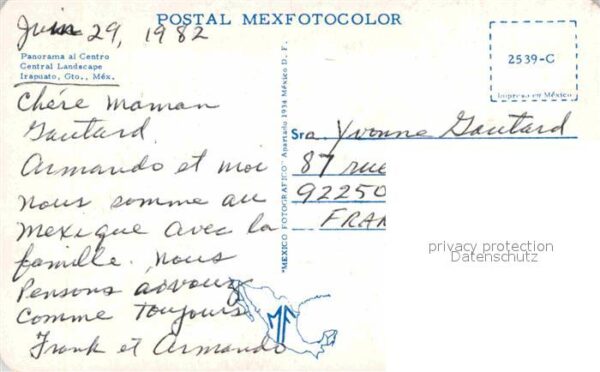 POSTAL MEXFOTOCOLOR
Juin 29, 1982
Panorama al Centro
Central Landscape
Irapuato, Gto., Méx.
Chére maman
Gautard.
Armando et moi
nous somme au
Mexique avec la
famille. Nous
Pensons a vous
Comme Toujours
Frank et Armando
"MEXICO FOTOGRAFICO" Apartado 1934 México D. F.
MF
2539-C
Impreso en México
Sra. Yvonne Gautard
87 rue
92250
FRAN
privacy protection
Datenschutz